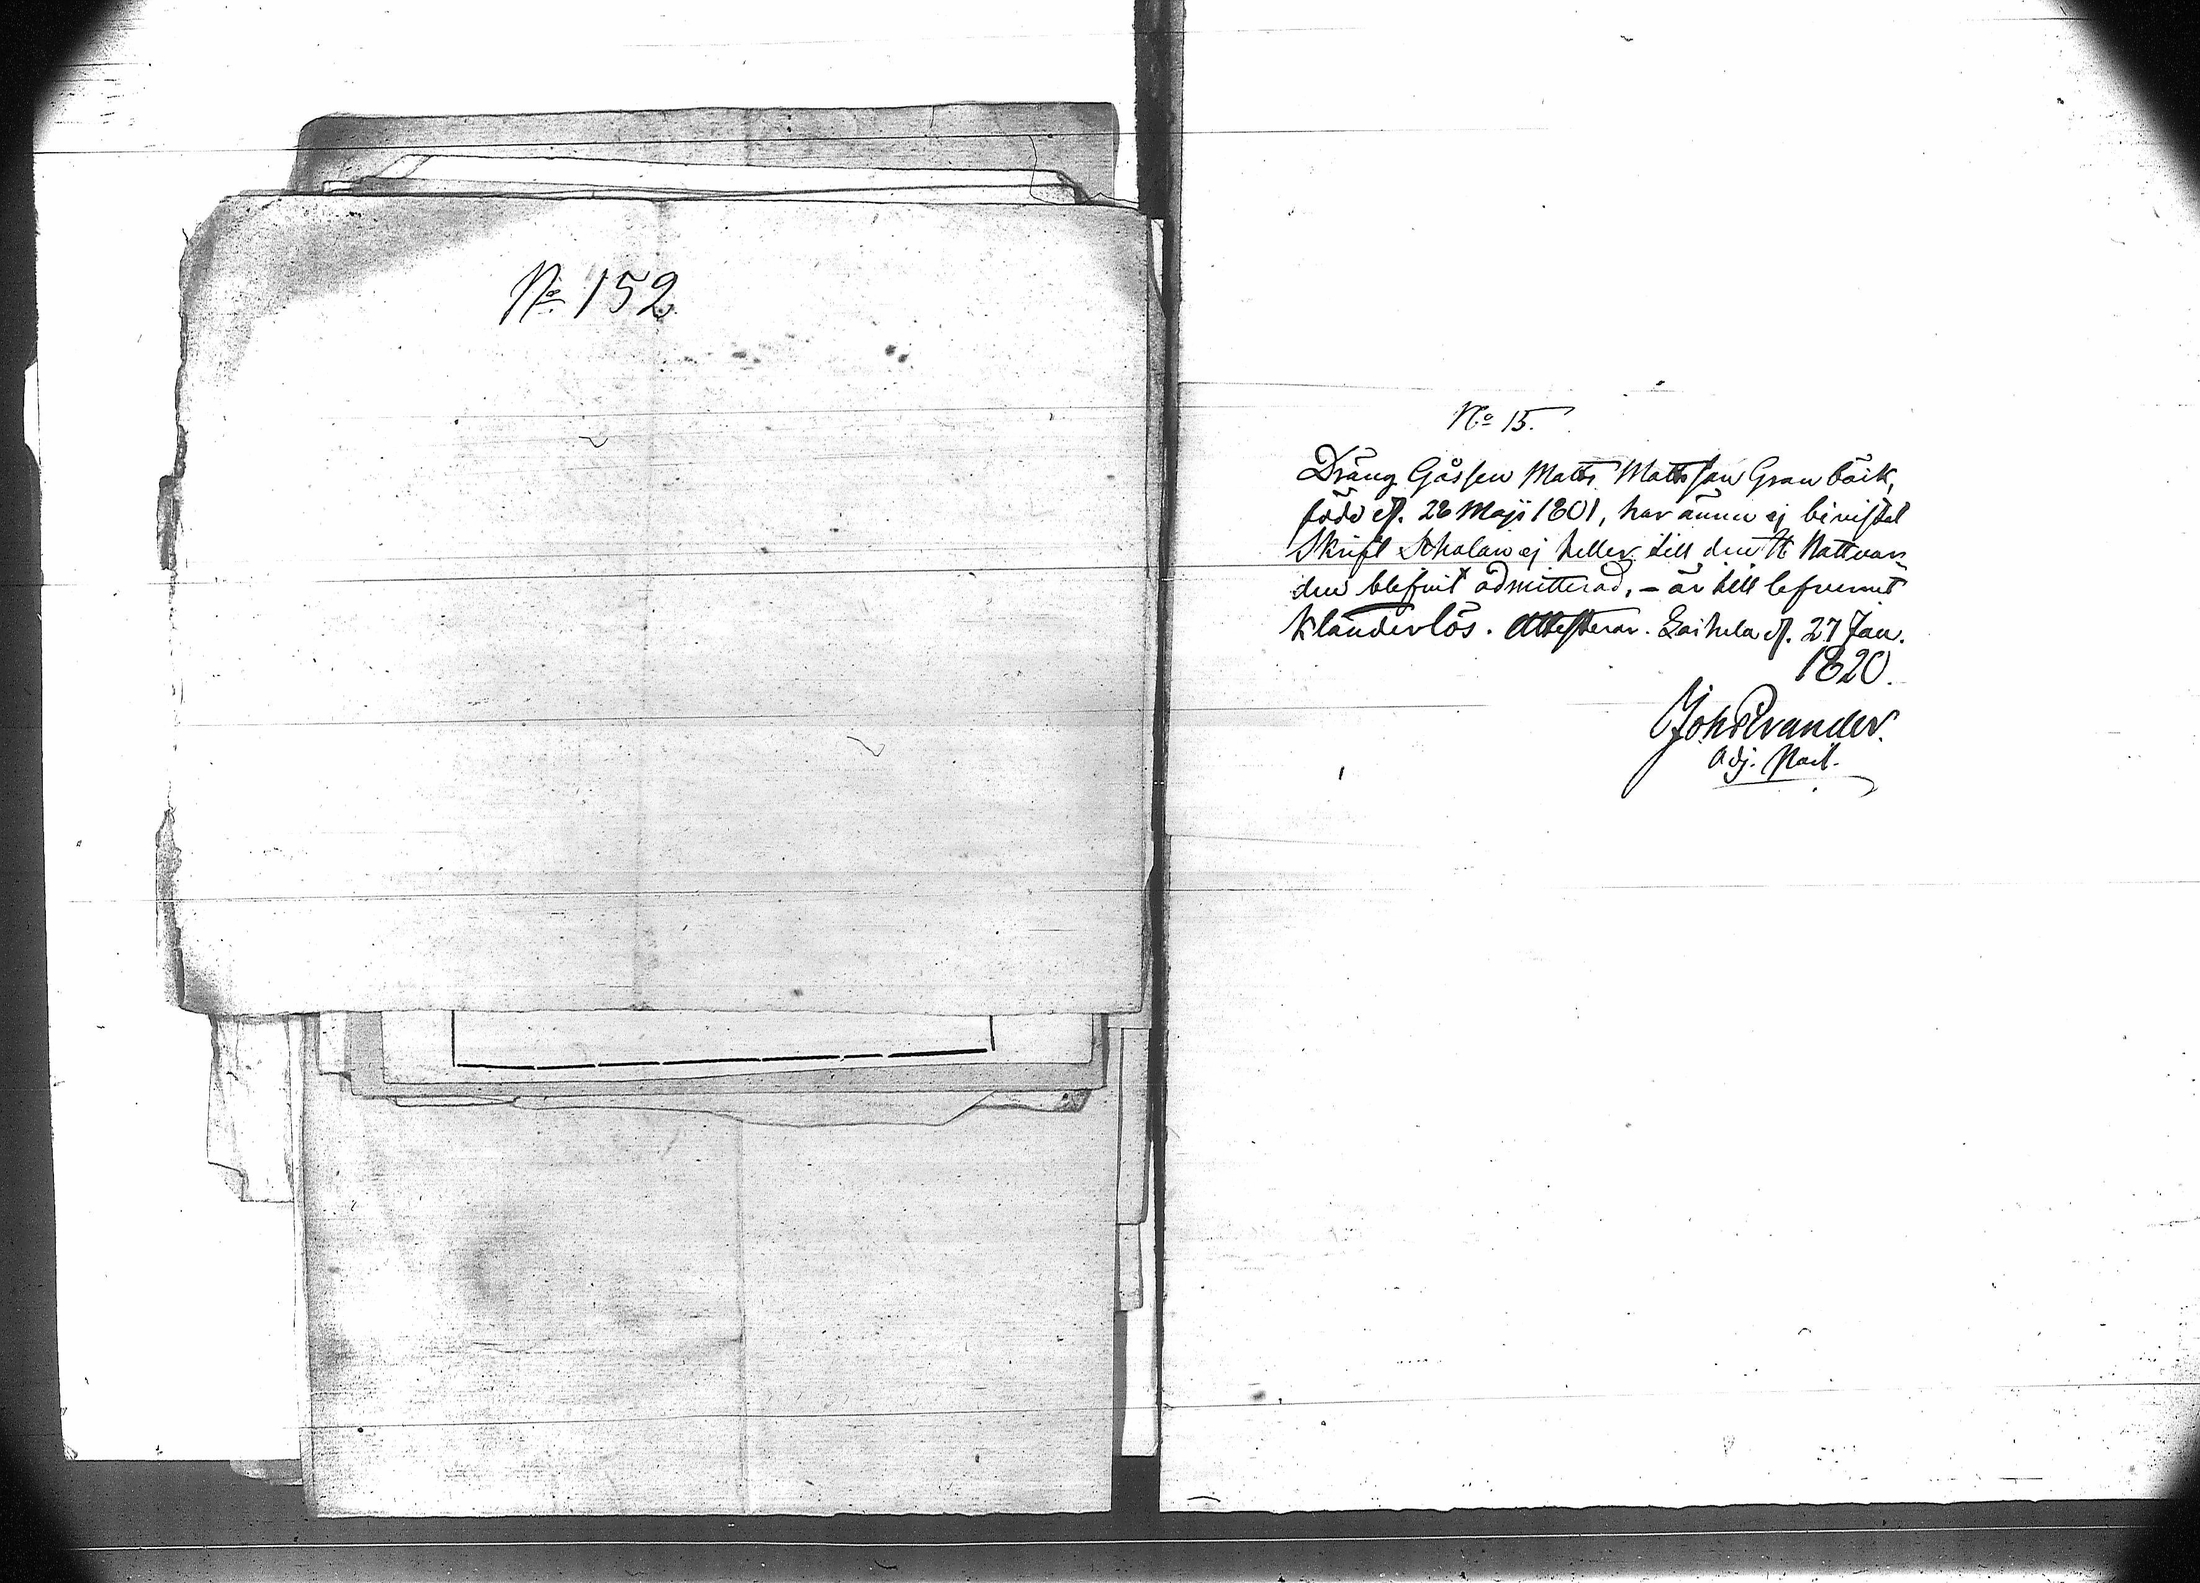 No 152
No 15.
Dräng Gåssen Matts Mattsson Granbäck,
född d. 28 Maji 1801, har ännu ej bevistat
Skrift Scholan ej heller till den H. Nattvar-
den blefvit admitterad, - är till lefvernet
klanderlös. Attesterar. Laihela d. 27 Jan.
1820.
Joh Elvander.
Adj. Past.